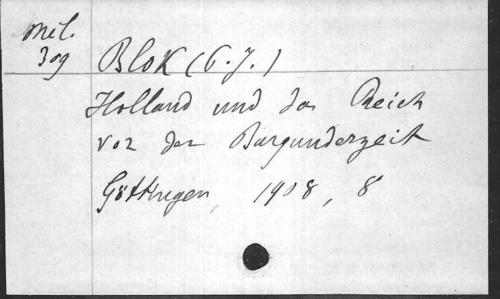 Mél.
309
Blok (P. J.)
Holland und das Reich
vor der Burgunderzeit
Göttingen, 1908, 8